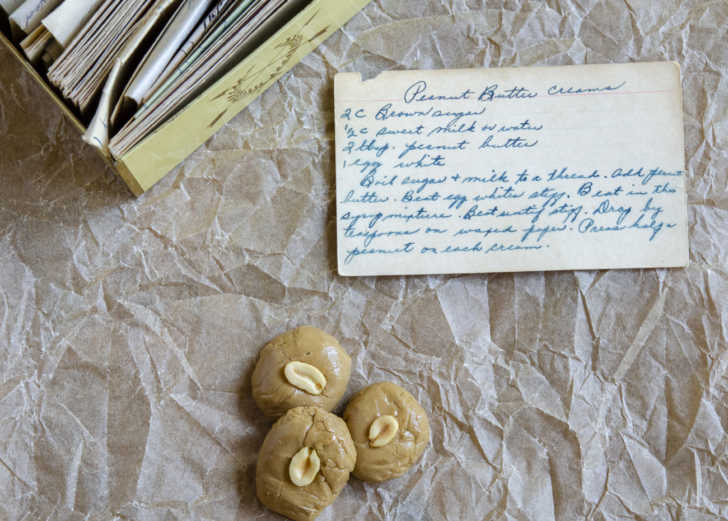 Peanut Butter Creams
2 C Brown sugar
1/2 C sweet milk or water
2 tbsp. peanut butter
1 egg white
Boil sugar + milk to a thread. Add peanut
butter. Beat egg white stiff. Beat in the
syrup mixture. Beat until stiff. Drop by
teaspoons on waxed paper. Press half a
peanut on each cream.